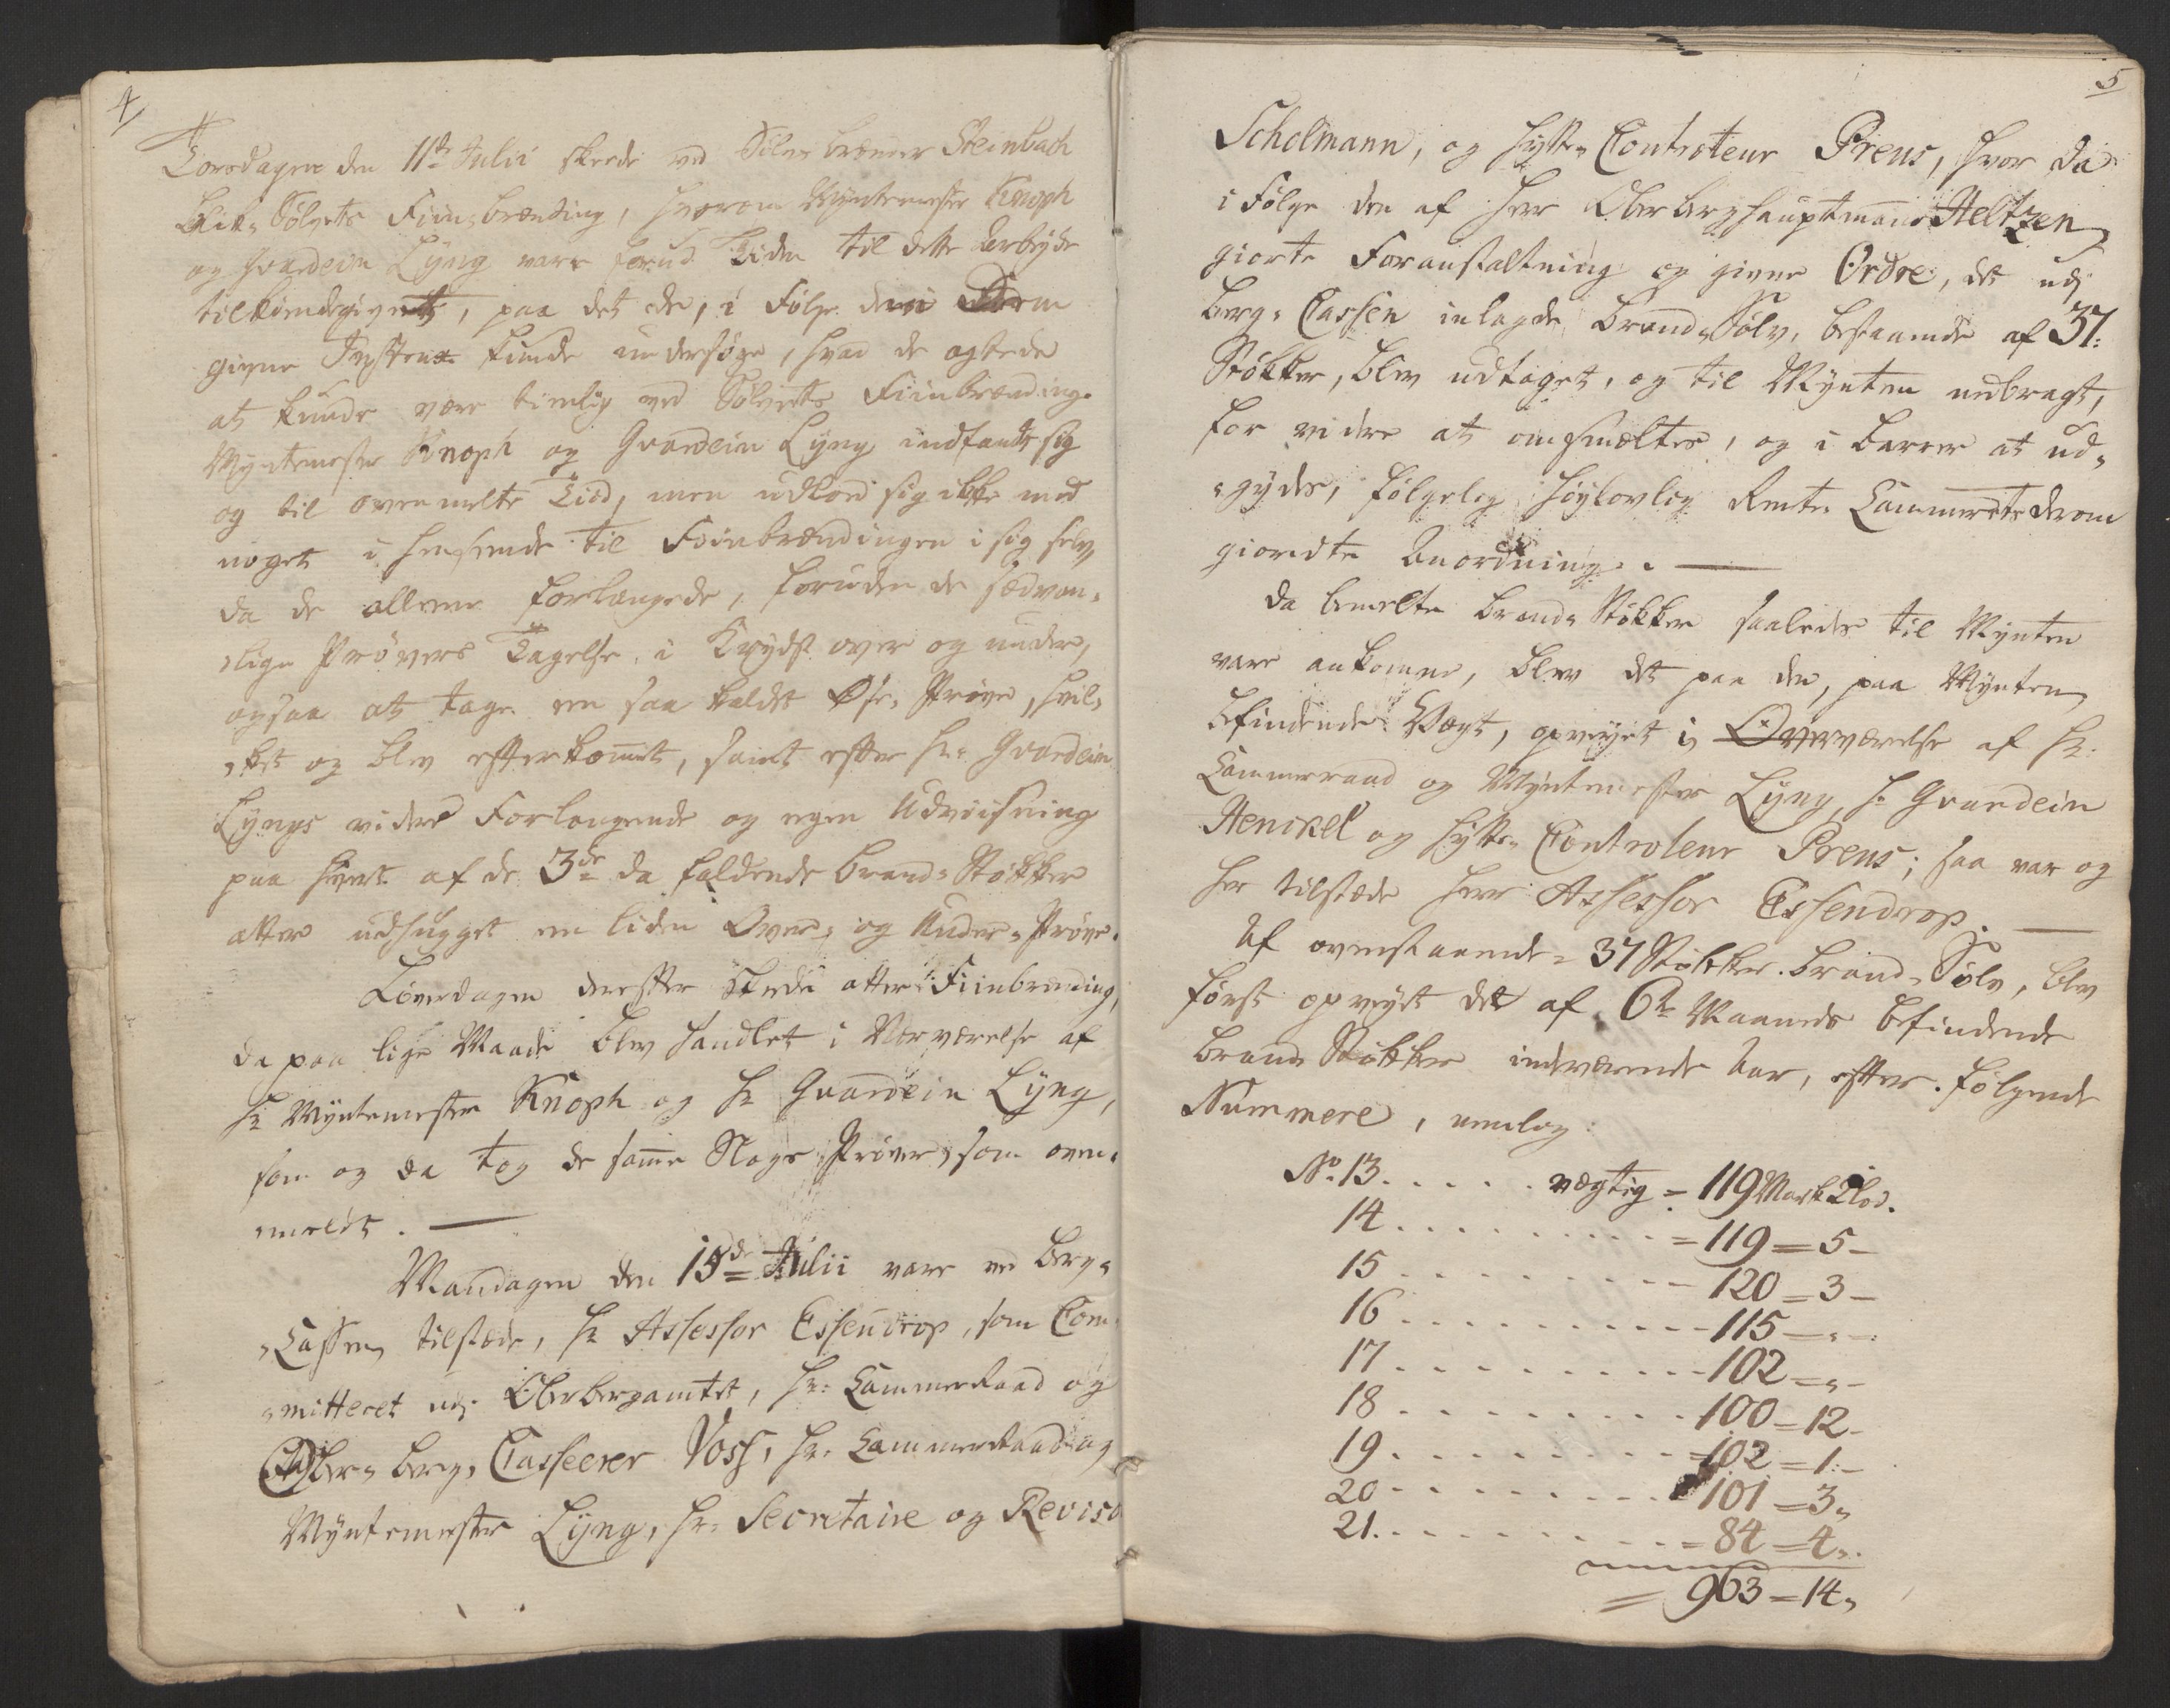 4
Torsdagen den 11te Julii skeede ved Sølvbrænder Steinbach
Blik-Sølvets Fiin-brænding, hvorom Myntemester Knoph
og Gvardein Lÿng vare forud Tiden til dette Arbeyde
tilkiendegivet, paa det de, i Følge den dem
givne Instrux kunde undersøge, hvad de agtede
at kunde være tienlig ved Sølvets Fiinbrænding.
Myntemester Knoph og Gvardein Lÿng indfandt sig
og til ovenmelte Tiid, men udlod sig ikke med
noget i Henseende til Fiinbrændingen i sig selv,
da de alleene forlangede, foruden de sædvan-
-lige Prøvers Tagelse, i Krydst over og under,
ogsaa at tage en saa kaldet Øse-Prøve, hvil-
-ket og blev efterkommet, samt efter Hr: Gvardein
Lÿngs videre Forlangende og egen Udviisning
paa hvert af de 3de da faldende Brand-Støkker
atter udhugget en liden Over- og Under-Prøve.
Løverdagen derefter skede atter Fiinbrænding,
da paa lige Maade blev handlet i Nærværelse af
Hr Myntemester Knoph og Hr Gvardein Lÿng,
som og da tog de samme Slags Prøver, som oven-
-meldt. —
Mandagen den 15de Julii vare ved Berg-
-Cassen tilstæde, Hr Assessor Essendrop, som Com-
-mitteret udj Oberbergamtet, Hr: Cammerraad og
Ober-Berg-Casseerer Voss, Hr: Cammerraad og
Myntemester Lÿng, Hr: Secretaire og Reviso
5
Scholmann, og Hytte-Controleur Preus, hvor da
i Følge den af Herr Oberberghauptmand Heltzen
giorte Foranstaltning og givne Ordre, det udj
Berg-Cassen inlagde Brand-Sølv, bestaaende af 37:
Støkker, blev udtaget, og til Mynten nedbragt,
for videre at omsmeltes, og i Barrer at ud-
-gydes, følgelig Høylovlig Rente-Cammerets derom
giordte Anordning. —
Da bemelte Brand-Støkker saaledes til Mynten
vare ankomne, blev det paa den, paa Mynten
befindende Vægt, opveyet i Overværelse af Hr:
Cammerraad og Myntemester Lÿng, Hr Gvardein
Henckel og Hytte-Controleur Preus; saa var og
her tilstæde Herr Assessor Essendrop. —
Af ovenstaaende 37 Støkker Brand-Sølv, blev
først opveyet det af 6te Maaneds befindende
Brand-Støkker indeværende Aar, efter følgende
Nummere, nemlig:
No. 13. . . . . . vægtig = 119 Mark Lod.
14. . . . . . . . . = 119 = 5 -
15 . . . . . . . . . - 120 = 3 -
16 . . . . . . . . . - 115 - „ -
17. . . . . . . . . - 102 = „ -
18 . . . . . . . . . - 100 = 12 -
19. . . . . . . . . - 102 = 1 -
20 . . . . . . . . . 101 = 3„
21. . . . . . . . . = 84 = 4„
= 963 = 14„